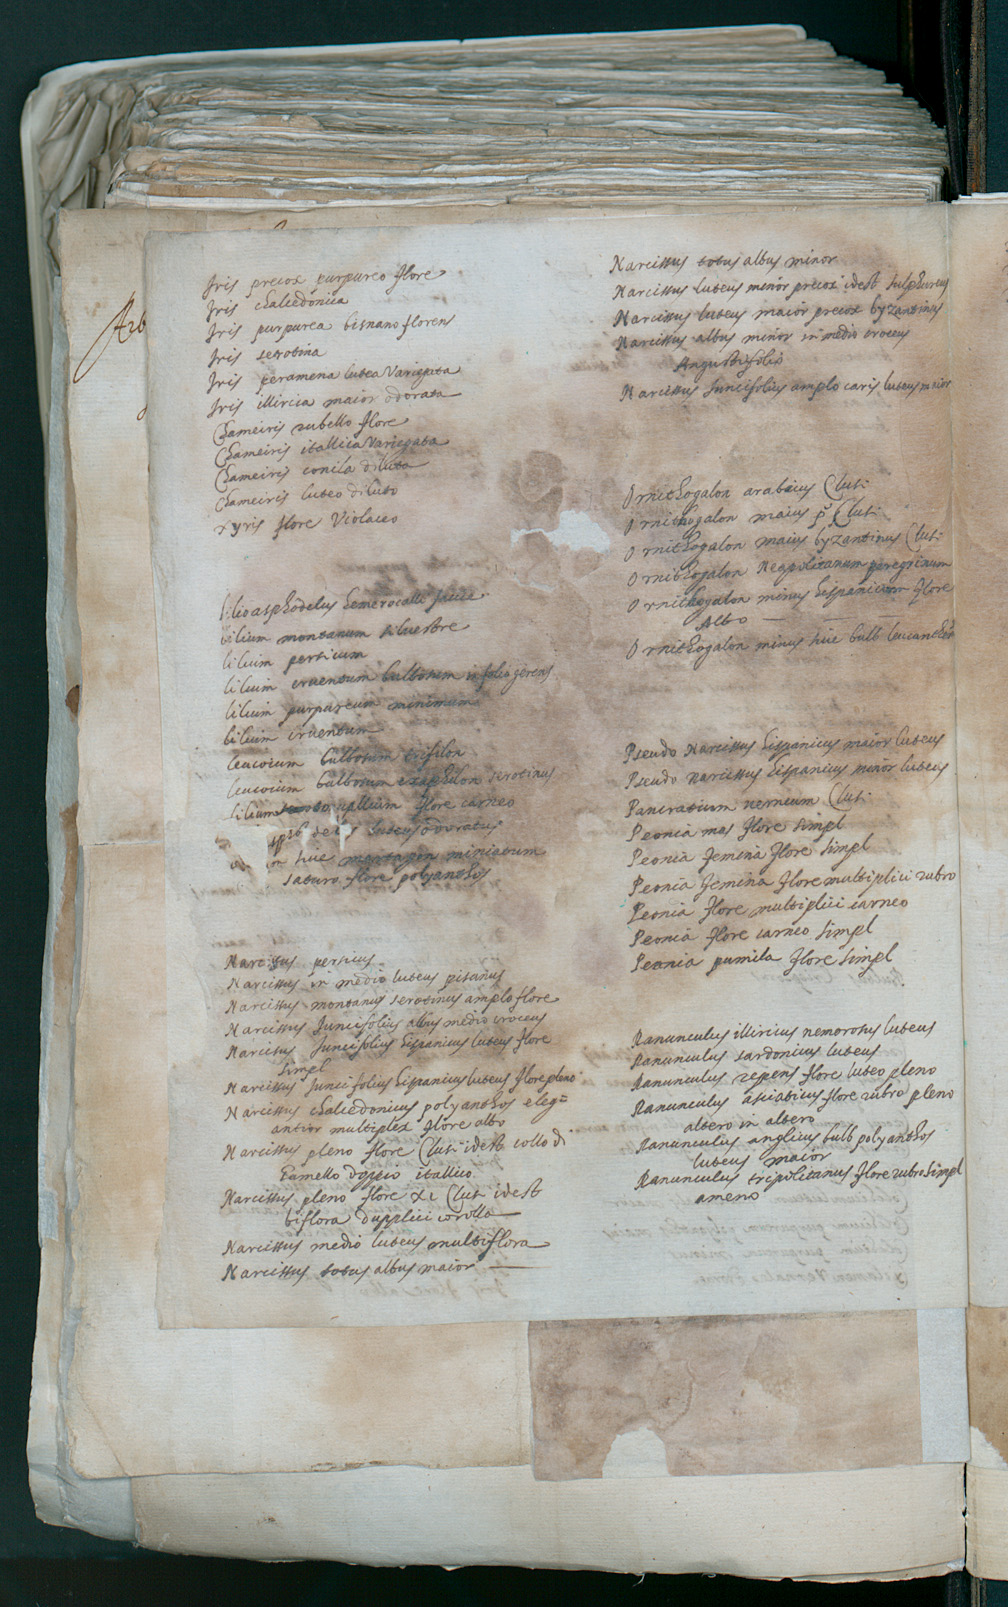 Arb
Iris precox purpureo flore
Iris chalcedonica
Iris purpurea bisnano florens
Iris serotina
Iris peramena lutea Variegata
Iris illiricia maior odorata
Chameiris rubello flore
Chameiris itallica Variegata
Chameiris conila diluta
Chameiris luteo diluto
xyris flore Violaceo
lilioasphodelus hemerocalli
lilium montanum silvestre
lilium persicum
lilium cruentum bulborum in folio gerens
lilium purpureum minimum
lilium cruentum
leucoium bulbosum trifilon
leucoium bulbosum exaphilon serotinus
lilium uallium flore carneo
luteus odoratus
sive martagon miniatum
saturo flore polyanthos
Narcissus persicus
Narcissus in medio luteus pisanus
Narcissus montanus serotinus amplo flore
Narcissus Juncifolius albus medio croceus
Narcissus Juncifolius hispanicus luteus flore
simpl
Narcissus Juncifolius hispanicus luteus flore pleno
Narcissus chalcedonicus polyanthos eleg=
antior multiplex flore albo
Narcissus pleno flore Clusi idest collo di
Camello doppio itallico
Narcissus pleno flore Clut idest
biflora dupplici corolla
Narcissus medio luteus multiflora
Narcissus totus albus maior
Narcissus totus albus minor
Narcissus luteus minor precox idest sulphureus
Narcissus luteus maior precox byzantinus
Narcissus albus minor in medio croceus
Angustifolio
Narcissus Juncifolius amplo caris luteus maior
Ornithogalon arabicus Clut:
Ornithogalon maius p.º Clut:
Ornithogalon maius byzantinus Clut:
Ornithogalon Neapolitanum peregrinum
Ornithogalon minus hispanicum flore
Albo
Ornithogalon minus sive bulb leucanthes
Pseudo Narcissus hispanicus maior luteus
Pseudo narcissus hispanicus minor luteus
Pancratium verneum Clut:
Peonia mas flore simpl
Peonia femina flore simpl
Peonia femina flore multiplici rubro
Peonia flore multiplici carneo
Peonia flore carneo simpl
Peonia pumila flore simpl
Ranunculus illiricus nemorosus luteus
Ranunculus sardonicus luteus
Ranunculus repens flore luteo pleno
Ranunculus asiaticus flore rubro pleno
altero in altero
Ranunculus anglicus bulb polyanthos
luteus maior
Ranunculus tripolitanus flore rubro simpl
ameno